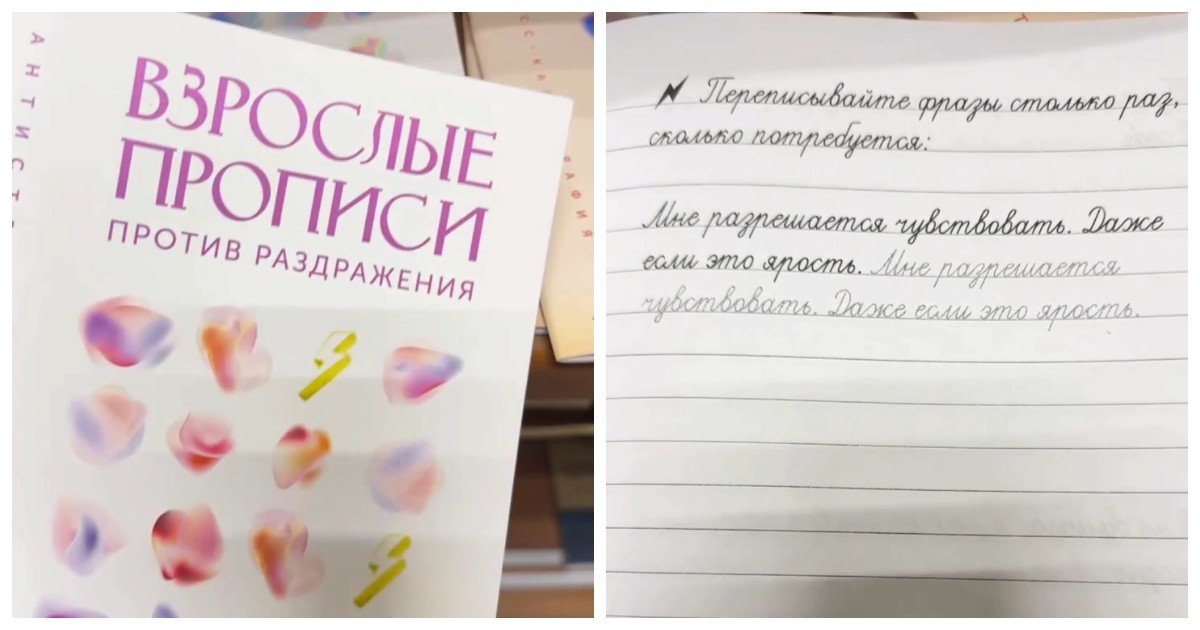 ВЗРОСЛЫЕ
ПРОПИСИ
ПРОТИВ РАЗДРАЖЕНИЯ
Переписывайте фразы столько раз,
сколько потребуется:
Мне разрешается чувствовать. Даже
если это ярость. Мне разрешается
чувствовать. Даже если это ярость.